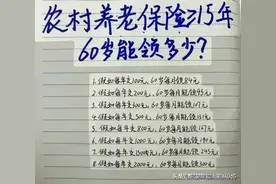 农村养老保险交15年
60岁能领多少?
1.假如每年交100元,60岁每月能领84元
2.假如每年交200元,60岁每月能领95元
3.假如每年交300元,60岁每月能领
4.假如每年交500元,60岁每月能领
5.假如每年交800元,60岁每月能领
6.假如每年交1000元,60岁每月能领
7.假如每年交1500元,60岁每月能领245元
8.假如每年交2000元,60岁每月能领300元